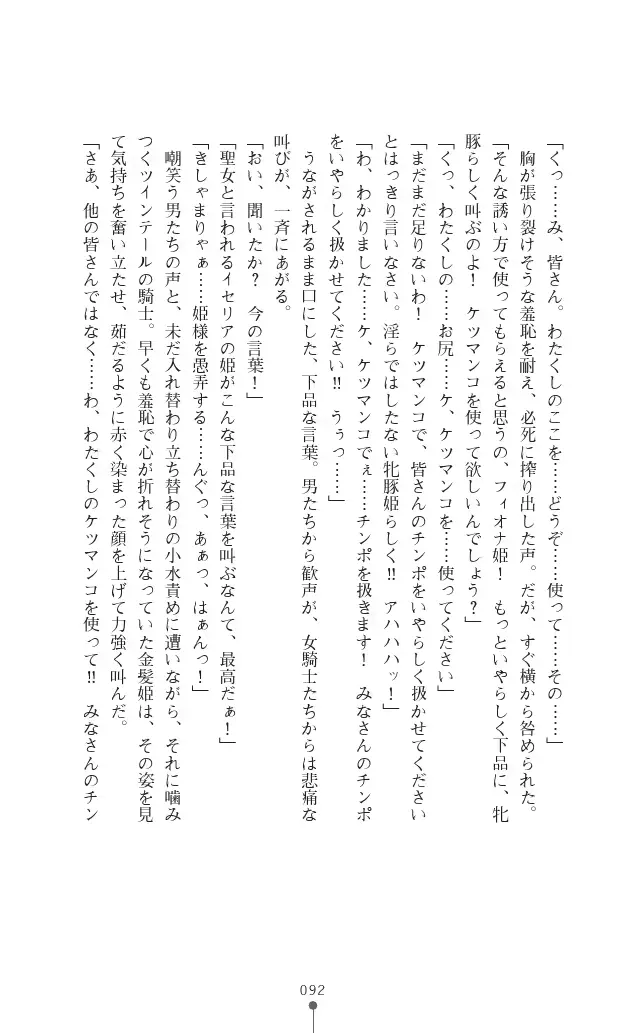 「くっ……み、皆さん。わたくしのここを……どうぞ……使って……その……」
　胸が張り裂けそうな羞恥を耐え、必死に搾り出した声。だが、すぐ横から咎められた。
「そんな誘い方で使ってもらえると思うの、フィオナ姫！　もっといやらしく下品に、牝
豚らしく叫ぶのよ！　ケツマンコを使って欲しいんでしょう？」
「くっ、わたくしの……お尻……ケ、ケツマンコを……使ってください」
「まだまだ足りないわ！　ケツマンコで、皆さんのチンポをいやらしく扱かせてください
とはっきり言いなさい。淫らではしたない牝豚姫らしく‼　アハハハッ！」
「わ、わかりました……ケ、ケツマンコでぇ……チンポを扱きます！　みなさんのチンポ
をいやらしく扱かせてください‼　うぅっ……」
　うながされるまま口にした、下品な言葉。男たちから歓声が、女騎士たちからは悲痛な
叫びが、一斉にあがる。
「おい、聞いたか？　今の言葉！」
「聖女と言われるイセリアの姫がこんな下品な言葉を叫ぶなんて、最高だぁ！」
「きしゃまりゃぁ……姫様を愚弄する……んぐっ、あぁっ、はぁんっ！」
　嘲笑う男たちの声と、未だ入れ替わり立ち替わりの小水責めに遭いながら、それに噛み
つくツインテールの騎士。早くも羞恥で心が折れそうになっていた金髪姫は、その姿を見
て気持ちを奮い立たせ、茹だるように赤く染まった顔を上げて力強く叫んだ。
「さあ、他の皆さんではなく……わ、わたくしのケツマンコを使って‼　みなさんのチン
092